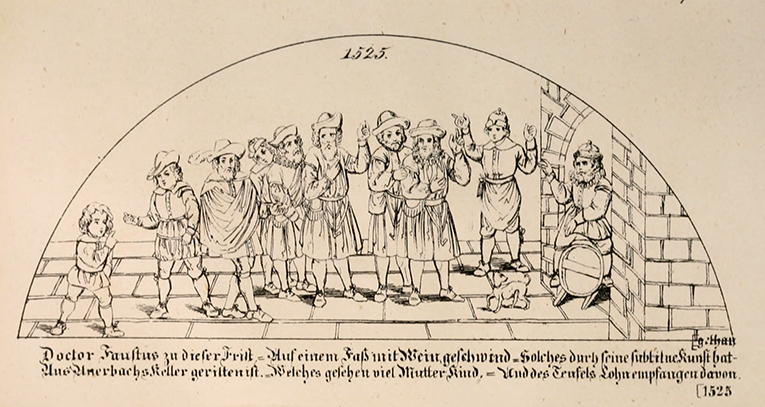 1525.
Doctor Faustus zu dieser Frist, = Auf einem Faß mit Wein, geschwind = Solches durch seine subtilne Kunst hat-
gethan
Aus Auerbachs Keller geritten ist. = Welches gesehen viel Mutter Kind, = Und des Teufels Lohn empfangen davon.
1525